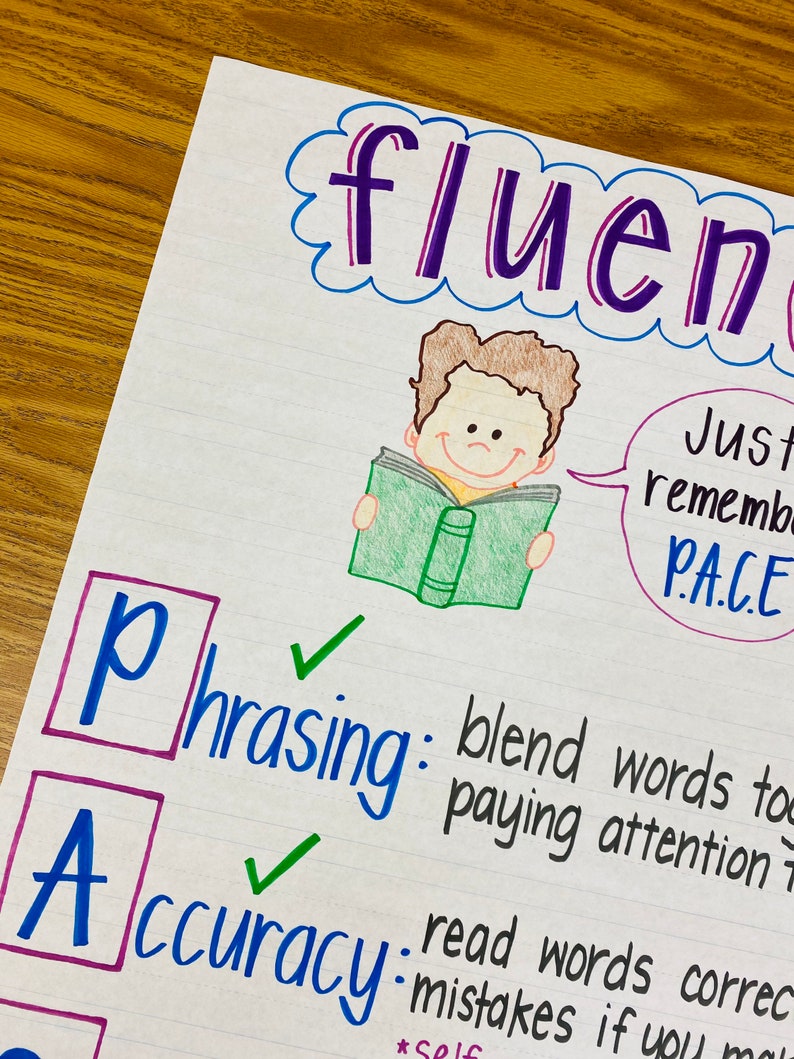 fluen
Just
remembe
P.A.C.E
Phrasing: blend words tog
paying attention
Accuracy: read words correc
mistakes if you ma
*self